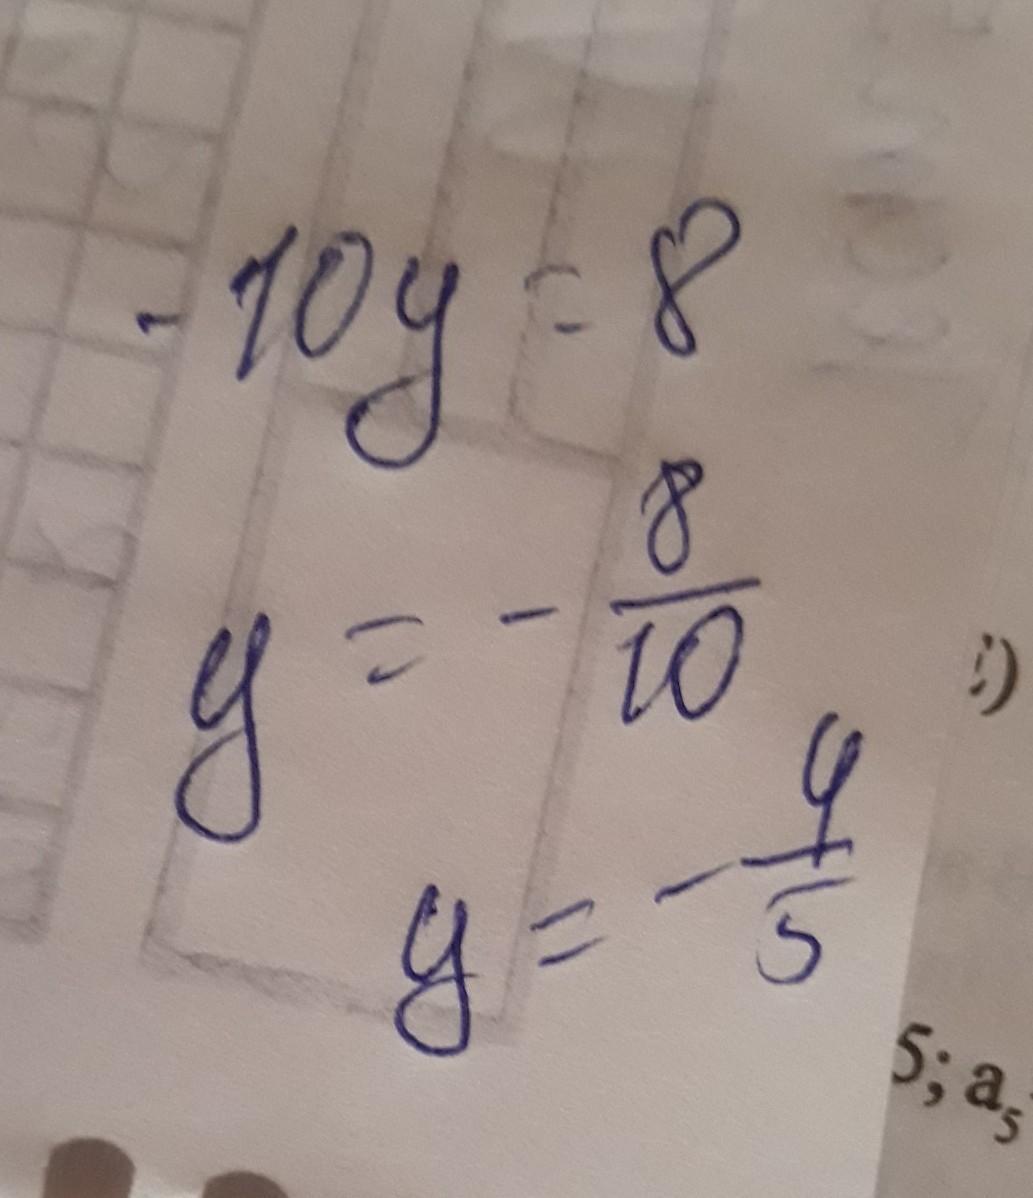 -10y = 8
y = - 8/10
y = - 4/5
i)
5; a₅